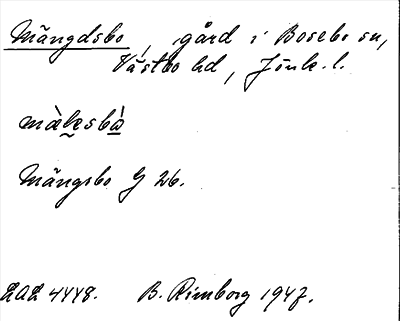 Mängdsbo, gård i Bosebo sn,
Västbo hd, Jönk. l.
Mängsbo G 26.
LAL 4448. B. Rimborg 1947.